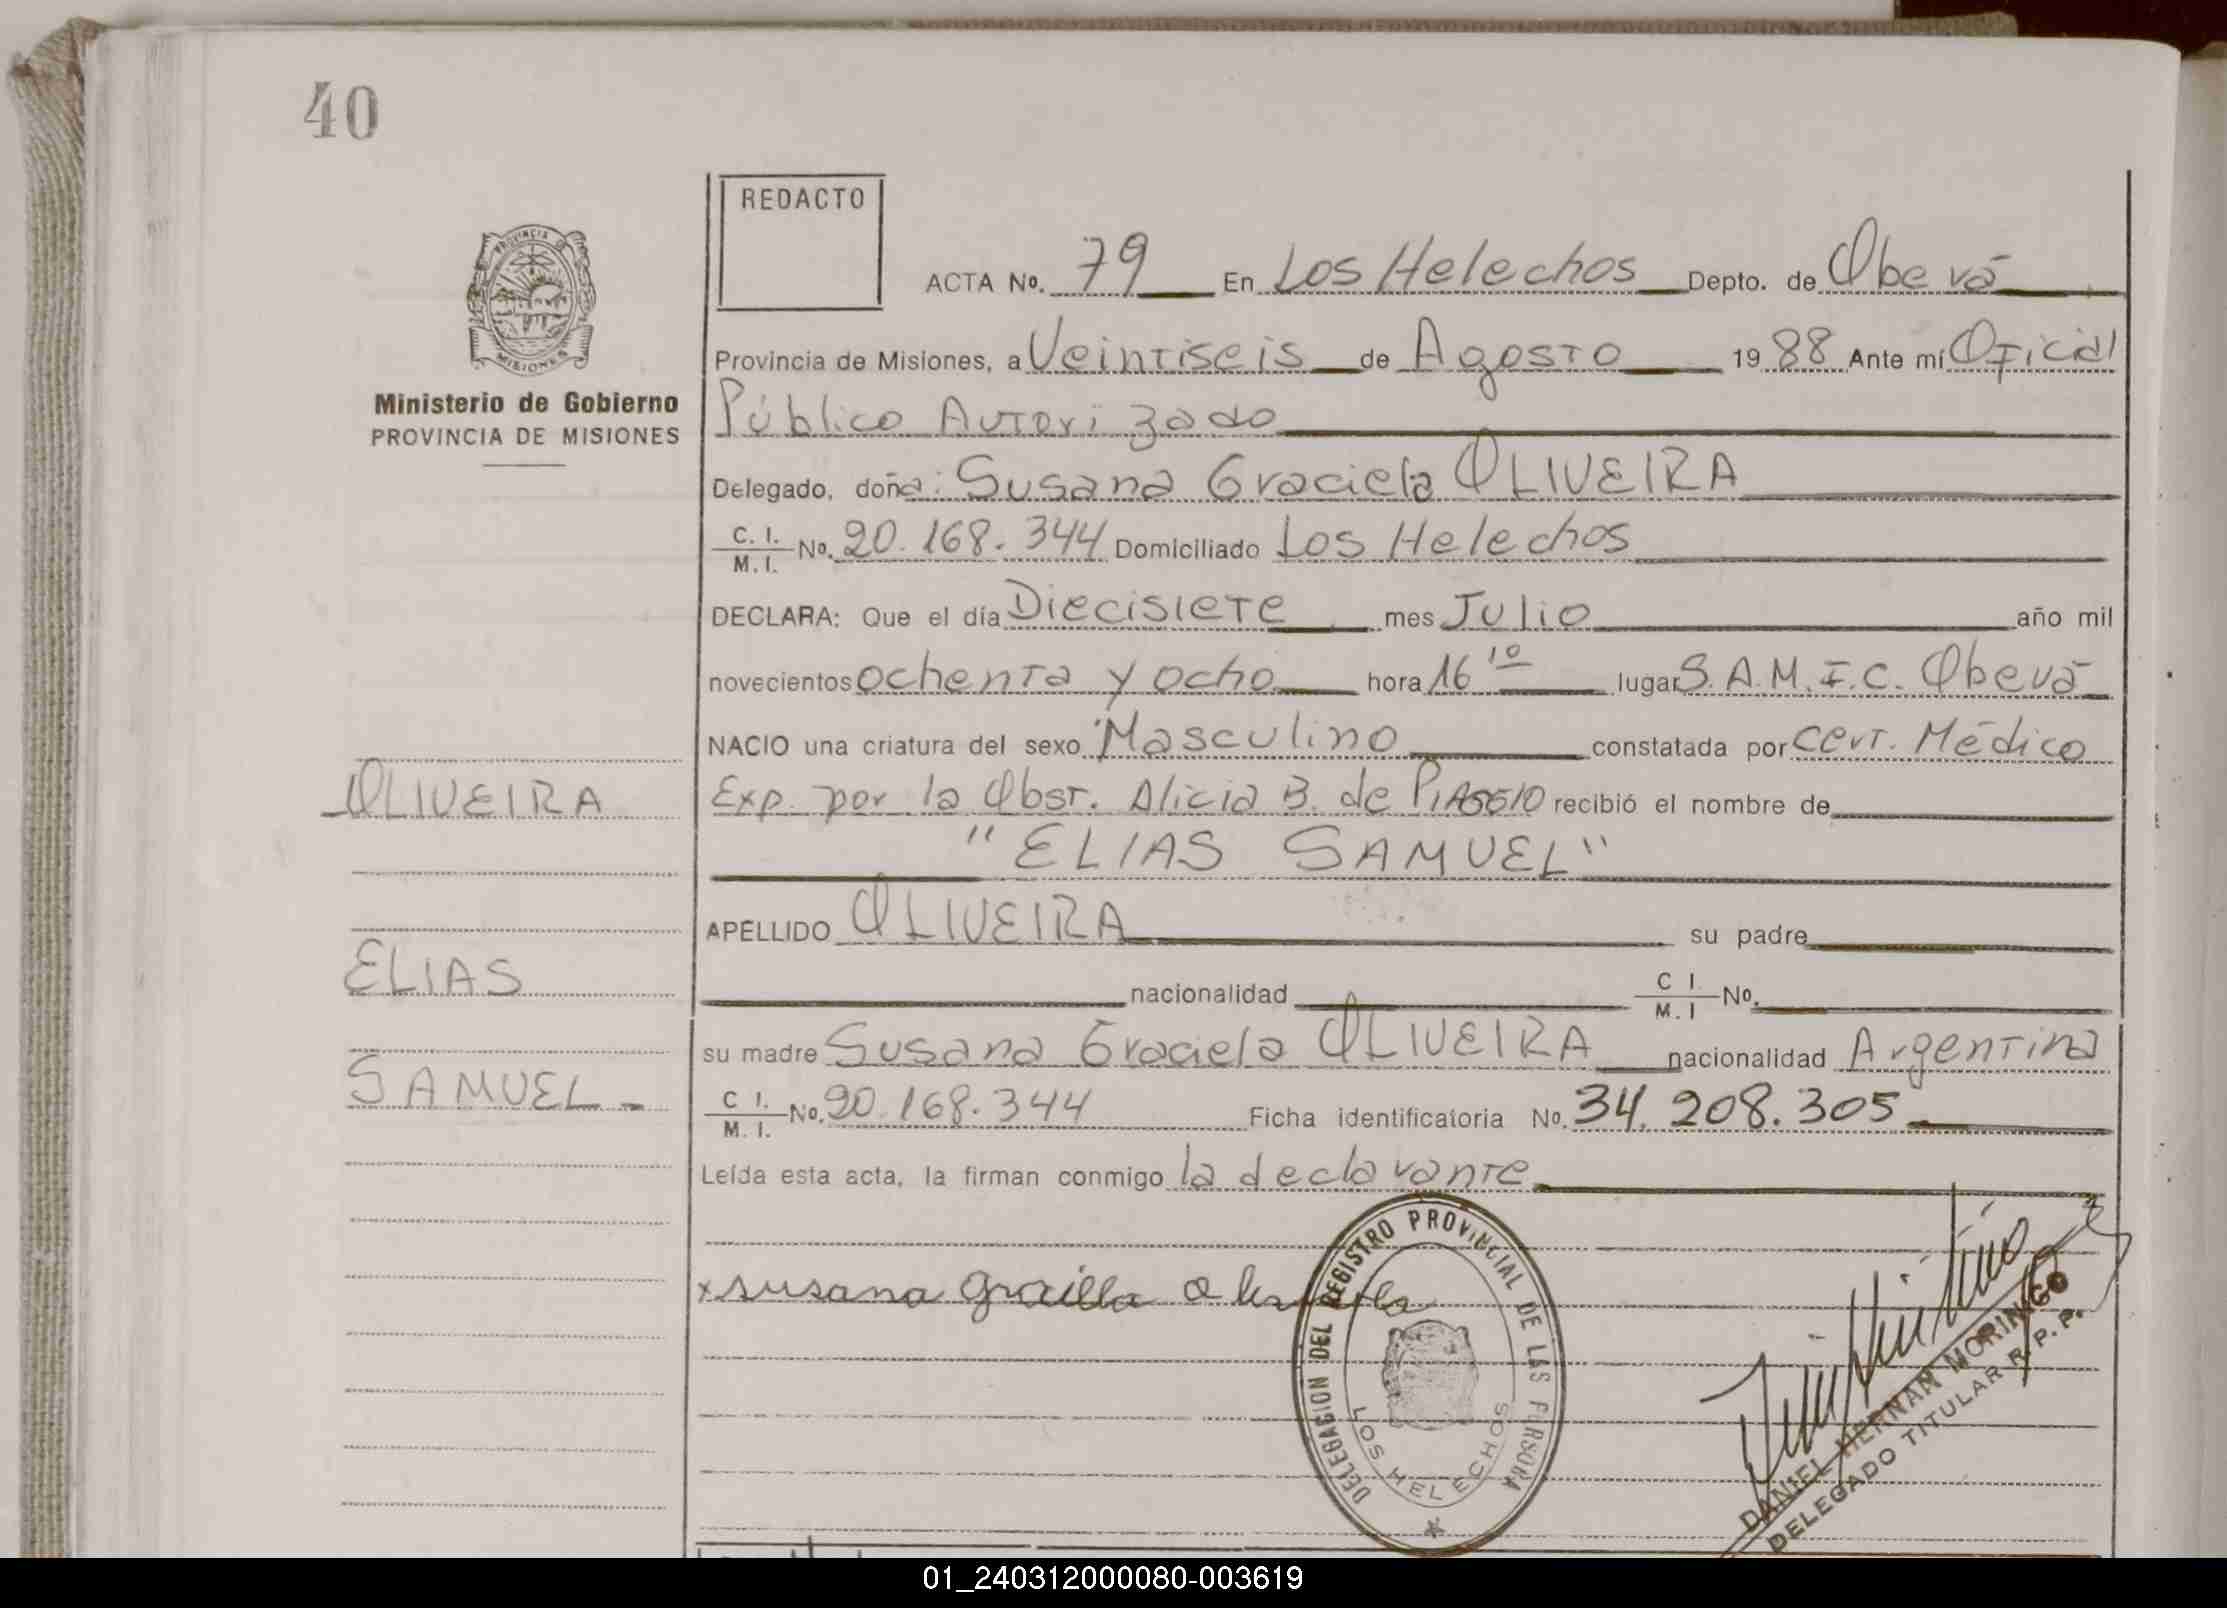 40
REDACTO
PROVINCIA DE
MISIONES
Ministerio de Gobierno
PROVINCIA DE MISIONES
ACTA No. 79 En Los Helechos Depto. de Oberá
Provincia de Misiones, a Veintiseis de Agosto 1988 Ante mí Oficial
Público Autorizado
Delegado, doña: Susana Graciela OLIVEIRA
C. I. / M. I. No. 20.168.344 Domiciliado Los Helechos
DECLARA: Que el día Diecisiete mes Julio año mil
novecientos ochenta y ocho hora 16 10 lugar S.A.M.I.C. Oberá
NACIO una criatura del sexo Masculino constatada por Cert. Médico
Exp. por la Obst. Alicia B. de PIAGGIO recibió el nombre de
"ELIAS SAMUEL"
APELLIDO OLIVEIRA su padre
nacionalidad C I. / M. I No.
su madre Susana Graciela OLIVEIRA nacionalidad Argentina
C I. / M. I. No. 20.168.344 Ficha identificatoria No. 34.208.305
Leída esta acta, la firman conmigo la declarante
OLIVEIRA
ELIAS
SAMUEL-
x susana
DELEGACION DEL REGISTRO PROVINCIAL DE LAS PERSONAS
LOS HELECHOS
DANIEL HERNAN MORINIGO
DELEGADO TITULAR R. P. P.
01_240312000080-003619